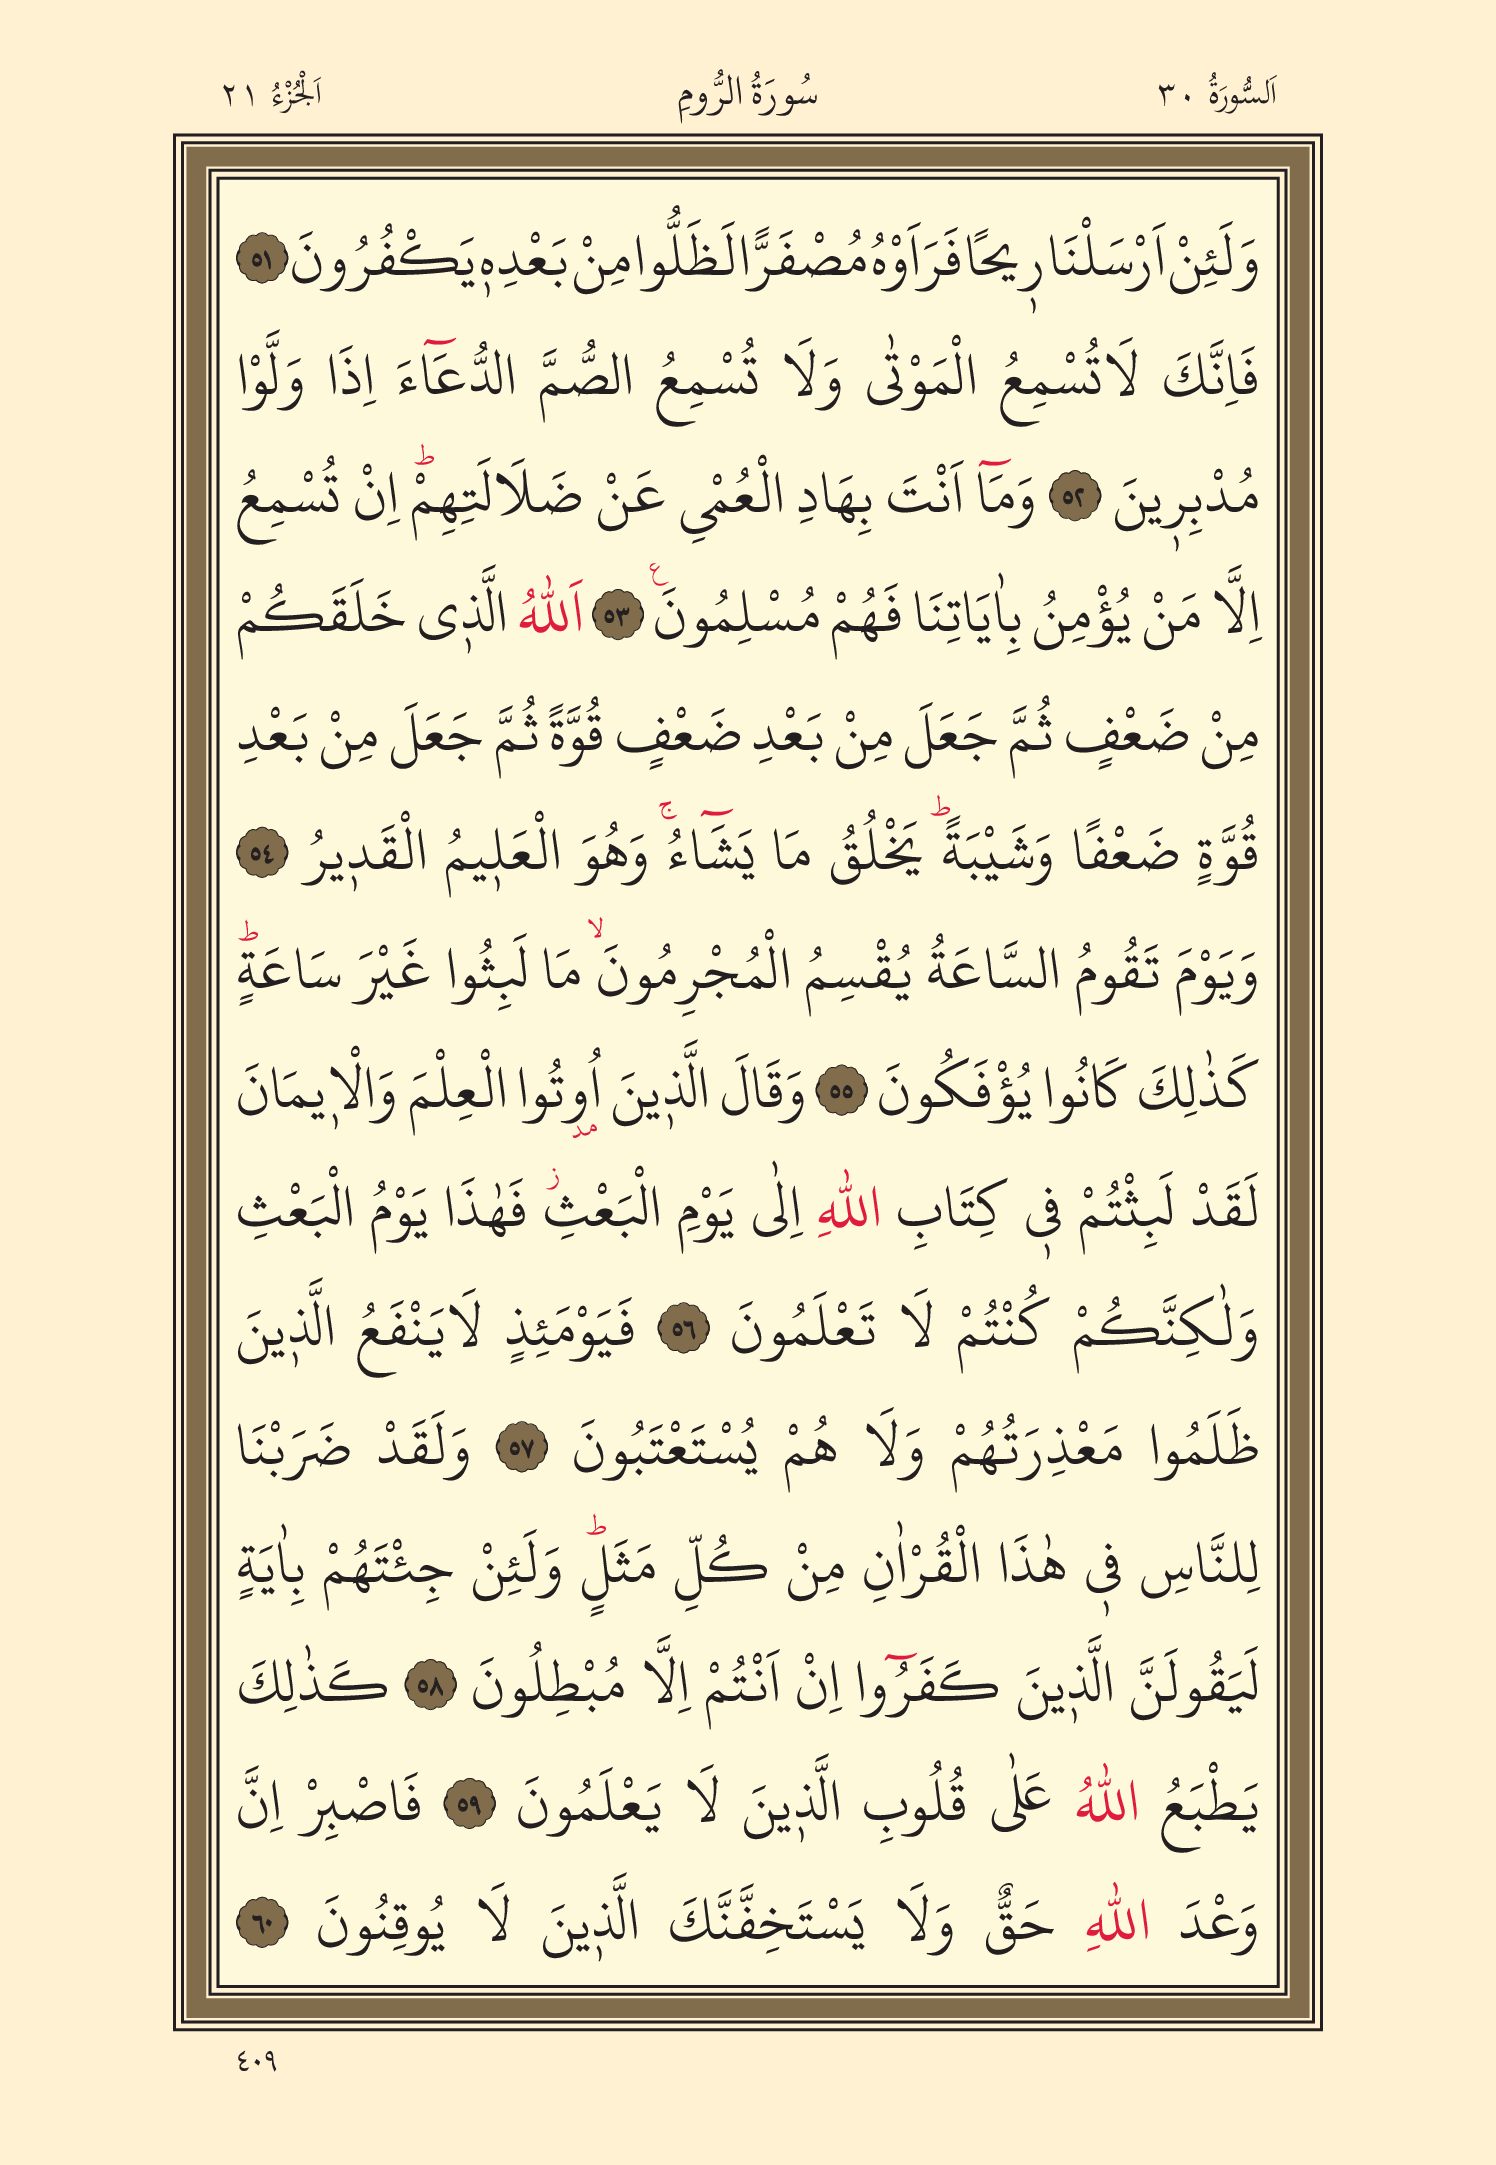 اَلسُّورَةُ ٣٠ سُورَةُ الرُّومِ اَلْجُزْءُ ٢١
وَلَئِنْ اَرْسَلْنَا رٖيحًا فَرَاَوْهُ مُصْفَرًّا لَظَلُّوا مِنْ بَعْدِهٖ يَكْفُرُونَ ٥١
فَاِنَّكَ لَا تُسْمِعُ الْمَوْتٰى وَلَا تُسْمِعُ الصُّمَّ الدُّعَٓاءَ اِذَا وَلَّوْا
مُدْبِرٖينَ ٥٢ وَمَٓا اَنْتَ بِهَادِ الْعُمْيِ عَنْ ضَلَالَتِهِمْؕ اِنْ تُسْمِعُ
اِلَّا مَنْ يُؤْمِنُ بِاٰيَاتِنَا فَهُمْ مُسْلِمُونَࣖ ٥٣ اَللّٰهُ الَّذٖى خَلَقَكُمْ
مِنْ ضَعْفٍ ثُمَّ جَعَلَ مِنْ بَعْدِ ضَعْفٍ قُوَّةً ثُمَّ جَعَلَ مِنْ بَعْدِ
قُوَّةٍ ضَعْفًا وَشَيْبَةًؕ يَخْلُقُ مَا يَشَٓاءُۚ وَهُوَ الْعَلٖيمُ الْقَدٖيرُ ٥٤
وَيَوْمَ تَقُومُ السَّاعَةُ يُقْسِمُ الْمُجْرِمُونَۙ مَا لَبِثُوا غَيْرَ سَاعَةٍؕ
كَذٰلِكَ كَانُوا يُؤْفَكُونَ ٥٥ وَقَالَ الَّذٖينَ اُوتُوا الْعِلْمَ وَالْاٖيمَانَ
مد
لَقَدْ لَبِثْتُمْ فٖى كِتَابِ اللّٰهِ اِلٰى يَوْمِ الْبَعْثِؗ فَهٰذَا يَوْمُ الْبَعْثِ
وَلٰكِنَّكُمْ كُنْتُمْ لَا تَعْلَمُونَ ٥٦ فَيَوْمَئِذٍ لَا يَنْفَعُ الَّذٖينَ
ظَلَمُوا مَعْذِرَتُهُمْ وَلَا هُمْ يُسْتَعْتَبُونَ ٥٧ وَلَقَدْ ضَرَبْنَا
لِلنَّاسِ فٖى هٰذَا الْقُرْاٰنِ مِنْ كُلِّ مَثَلٍؕ وَلَئِنْ جِئْتَهُمْ بِاٰيَةٍ
لَيَقُولَنَّ الَّذٖينَ كَفَرُٓوا اِنْ اَنْتُمْ اِلَّا مُبْطِلُونَ ٥٨ كَذٰلِكَ
يَطْبَعُ اللّٰهُ عَلٰى قُلُوبِ الَّذٖينَ لَا يَعْلَمُونَ ٥٩ فَاصْبِرْ اِنَّ
وَعْدَ اللّٰهِ حَقٌّ وَلَا يَسْتَخِفَّنَّكَ الَّذٖينَ لَا يُوقِنُونَ ٦٠
٤٠٩